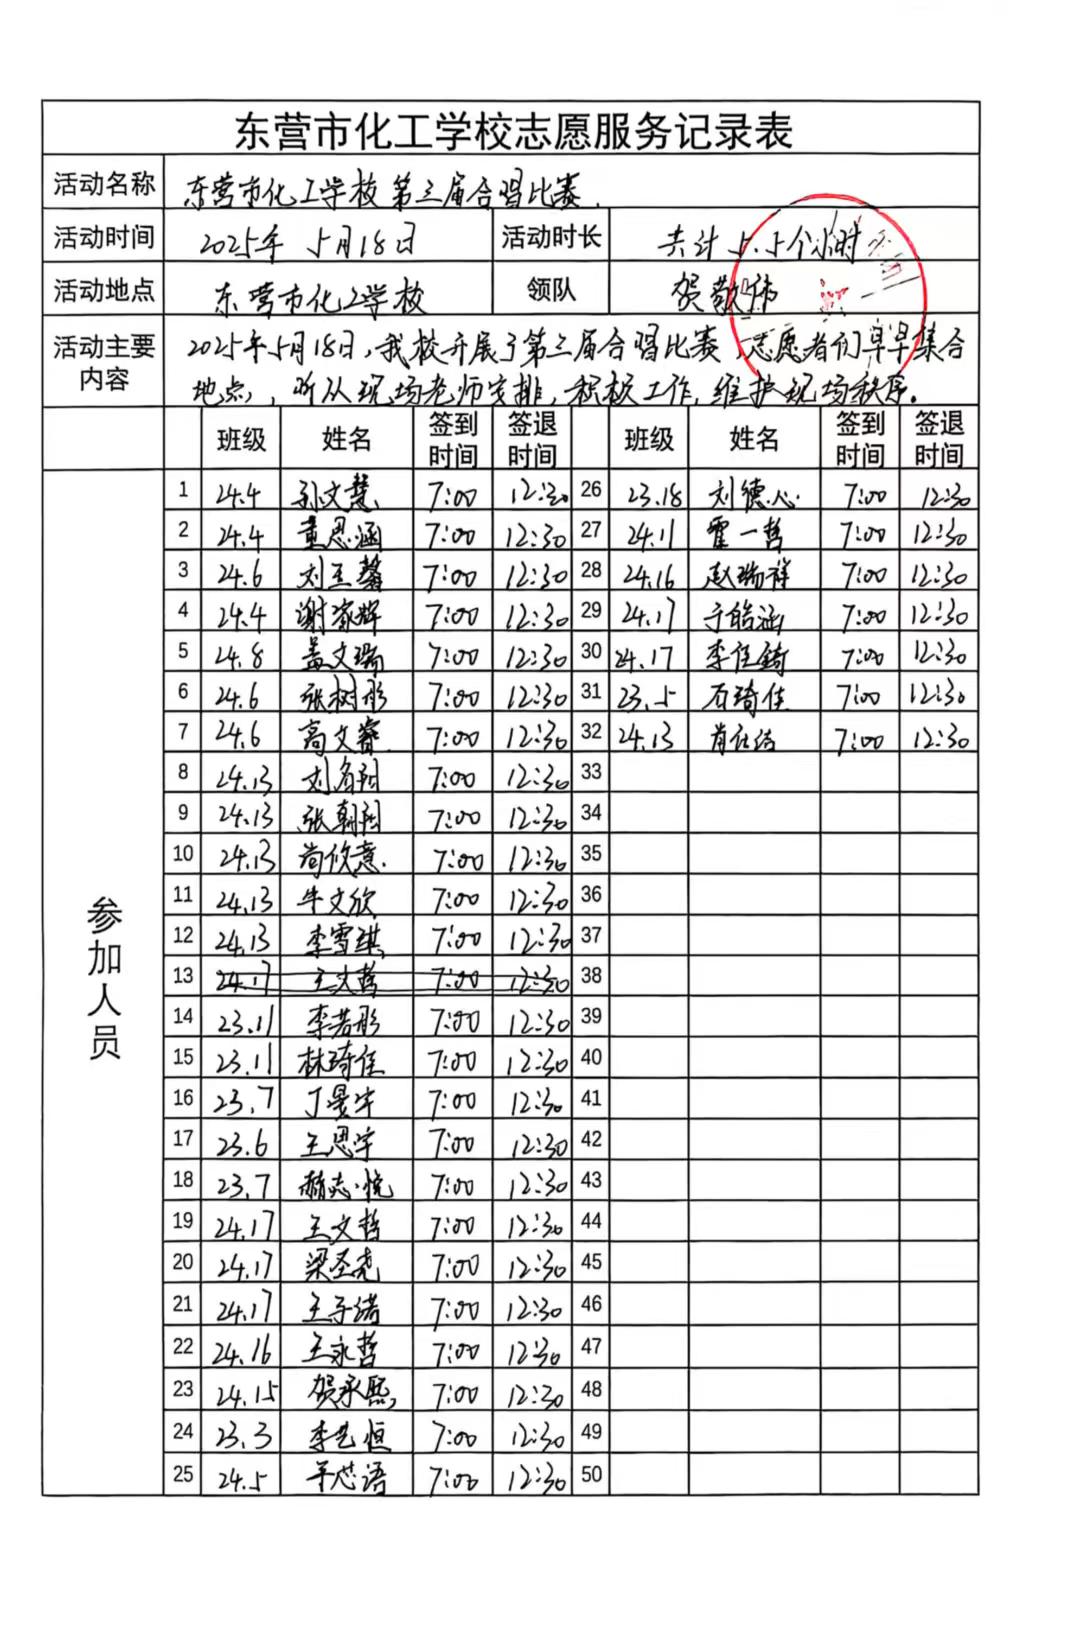 东营市化工学校志愿服务记录表
活动名称 东营市化工学校第三届合唱比赛.
活动时间 2025年 5月18日 活动时长 共计5.5个小时
活动地点 东营市化工学校 领队 贺敬伟
活动主要内容 2025年5月18日,我校开展了第三届合唱比赛,志愿者们早早集合
地点,听从现场老师安排,积极工作,维护现场秩序。
班级 姓名 签到时间 签退时间 班级 姓名 签到时间 签退时间
参加人员
1 24.4 孙文慧 7:00 12:30 26 23.18 刘德心 7:00 12:30
2 24.4 董思涵 7:00 12:30 27 24.11 霍一哲 7:00 12:30
3 24.6 刘玉馨 7:00 12:30 28 24.16 赵瑞祥 7:00 12:30
4 24.4 谢家辉 7:00 12:30 29 24.17 于皓涵 7:00 12:30
5 24.8 盖文瑞 7:00 12:30 30 24.17 李佳錡 7:00 12:30
6 24.6 张树彤 7:00 12:30 31 23.5 石琦佳 7:00 12:30
7 24.6 高文睿 7:00 12:30 32 24.13 7:00 12:30
8 24.13 刘名阳 7:00 12:30 33
9 24.13 张朝阳 7:00 12:30 34
10 24.13 尚攸意 7:00 12:30 35
11 24.13 牛文欣 7:00 12:30 36
12 24.13 李雪琪 7:00 12:30 37
13 24.17 王文哲 7:00 12:30 38
14 23.11 李若彤 7:00 12:30 39
15 23.11 林琦佳 7:00 12:30 40
16 23.7 丁昱宇 7:00 12:30 41
17 23.6 王思宇 7:00 12:30 42
18 23.7 赫志悦 7:00 12:30 43
19 24.17 王文哲 7:00 12:30 44
20 24.17 梁圣尧 7:00 12:30 45
21 24.17 王子诺 7:00 12:30 46
22 24.16 王永哲 7:00 12:30 47
23 24.15 贺承熙 7:00 12:30 48
24 23.3 李艺恒 7:00 12:30 49
25 24.5 于芯语 7:00 12:30 50